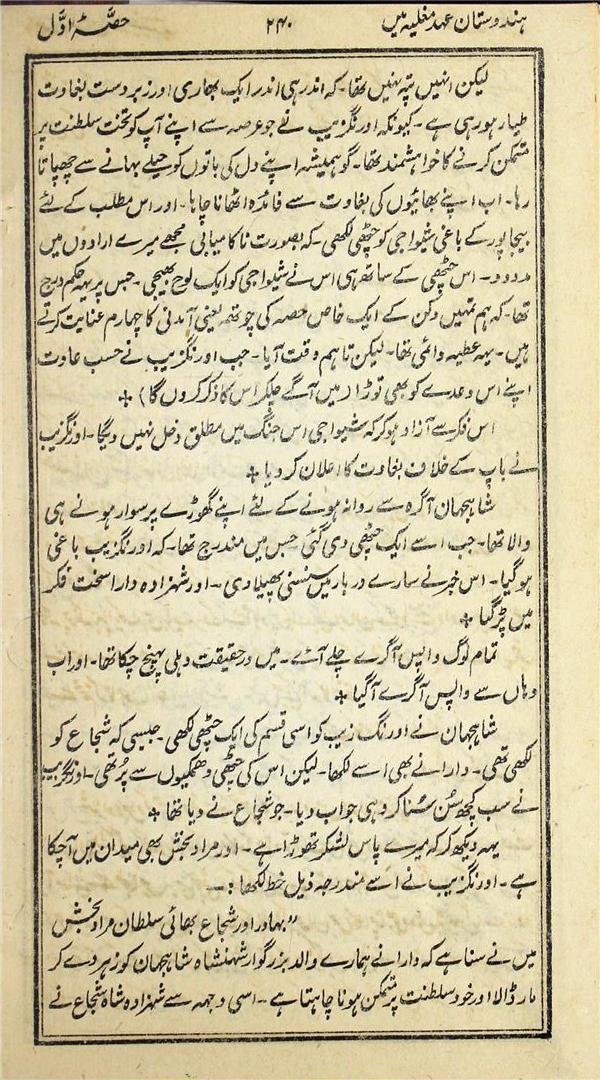 ہندوستان عہد مغلیہ میں ۲۴۰ حصّہٴ اوّل
لیکن انہیں پتہ نہیں تھا۔ کہ اندر ہی اندر ایک بھاری اور زبردست بغاوت
طیار ہو رہی ہے۔ کیونکہ اورنگزیب نے جو عرصہ سے اپنے آپ کو تخت سلطنت پر
متمکن کرنے کا خواہشمند تھا۔ گو ہمیشہ اپنے دل کی باتوں کو حیلے بہانے سے چھپاتا
رہا۔ اب اپنے بھائیوں کی بغاوت سے فائدہ اٹھانا چاہا۔ اور اس مطلب کے لئے
بیجاپور کے باغی شیواجی کو چٹھی لکھی۔ کہ بصورت ناکامیابی مجھے میرے ارادوں میں
مدد دو۔ اس چٹھی کے ساتھ ہی اس نے شیواجی کو ایک لوح بھیجی۔ جس پر یہہ حکم درج
تھا۔ کہ ہم تمہیں دکن کے ایک خاص حصہ کی چوتھ یعنی آمدنی کا چہارم عنایت کرتے
ہیں۔ یہہ عطیہ دائمی تھا۔ لیکن تاہم وقت آیا۔ جب اورنگزیب نے حسب عادت
اپنے اس وعدے کو بھی توڑا (میں آگے چلکر اس کا ذکر کروں گا) +
اس فکر سے آزاد ہو کر کہ شیواجی اس جنگ میں مطلق دخل نہیں دیگا۔ اورنگزیب
نے باپ کے خلاف بغاوت کا اعلان کر دیا +
شاہجہان آگرہ سے روانہ ہونے کے لئے اپنے گھوڑے پر سوار ہونے ہی
والا تھا۔ جب اسے ایک چٹھی دی گئی جس میں مندرج تھا۔ کہ اورنگزیب باغی
ہو گیا۔ اس خبر نے سارے دربار میں سنسنی پھیلا دی۔ اور شہزادہ دارا سخت فکر
میں پڑ گیا +
تمام لوگ واپس آگرے چلے آئے۔ میں درحقیقت دہلی پہنچ چکا تھا۔ اور اب
وہاں سے واپس آگرے آگیا +
شاہجہان نے اورنگ زیب کو اسی قسم کی ایک چٹھی لکھی۔ جیسی کہ شجاع کو
لکھی تھی۔ دارا نے بھی اسے لکھا۔ لیکن اس کی چٹھی دھمکیوں سے پُر تھی۔ اورنگزیب
نے سب کچھ سُن سُنا کر وہی جواب دیا۔ جو شجاع نے دیا تھا +
یہہ دیکھ کر کہ میرے پاس لشکر تھوڑا ہے۔ اور مراد بخش بھی میدان میں آچکا
ہے۔ اورنگزیب نے اسے مندرجہ ذیل خط لکھا:۔
”بہادر اور شجاع بھائی سلطان مراد بخش
میں نے سنا ہے کہ دارا نے ہمارے والد بزرگوار شہنشاہ شاہجہان کو زہر دے کر
مار ڈالا اور خود سلطنت پر متمکن ہونا چاہتا ہے۔ اسی وجہہ سے شہزادہ شاہ شجاع نے